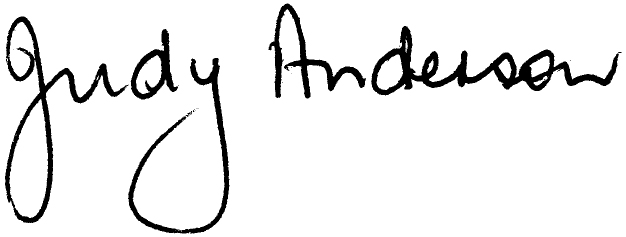 Judy Anderson